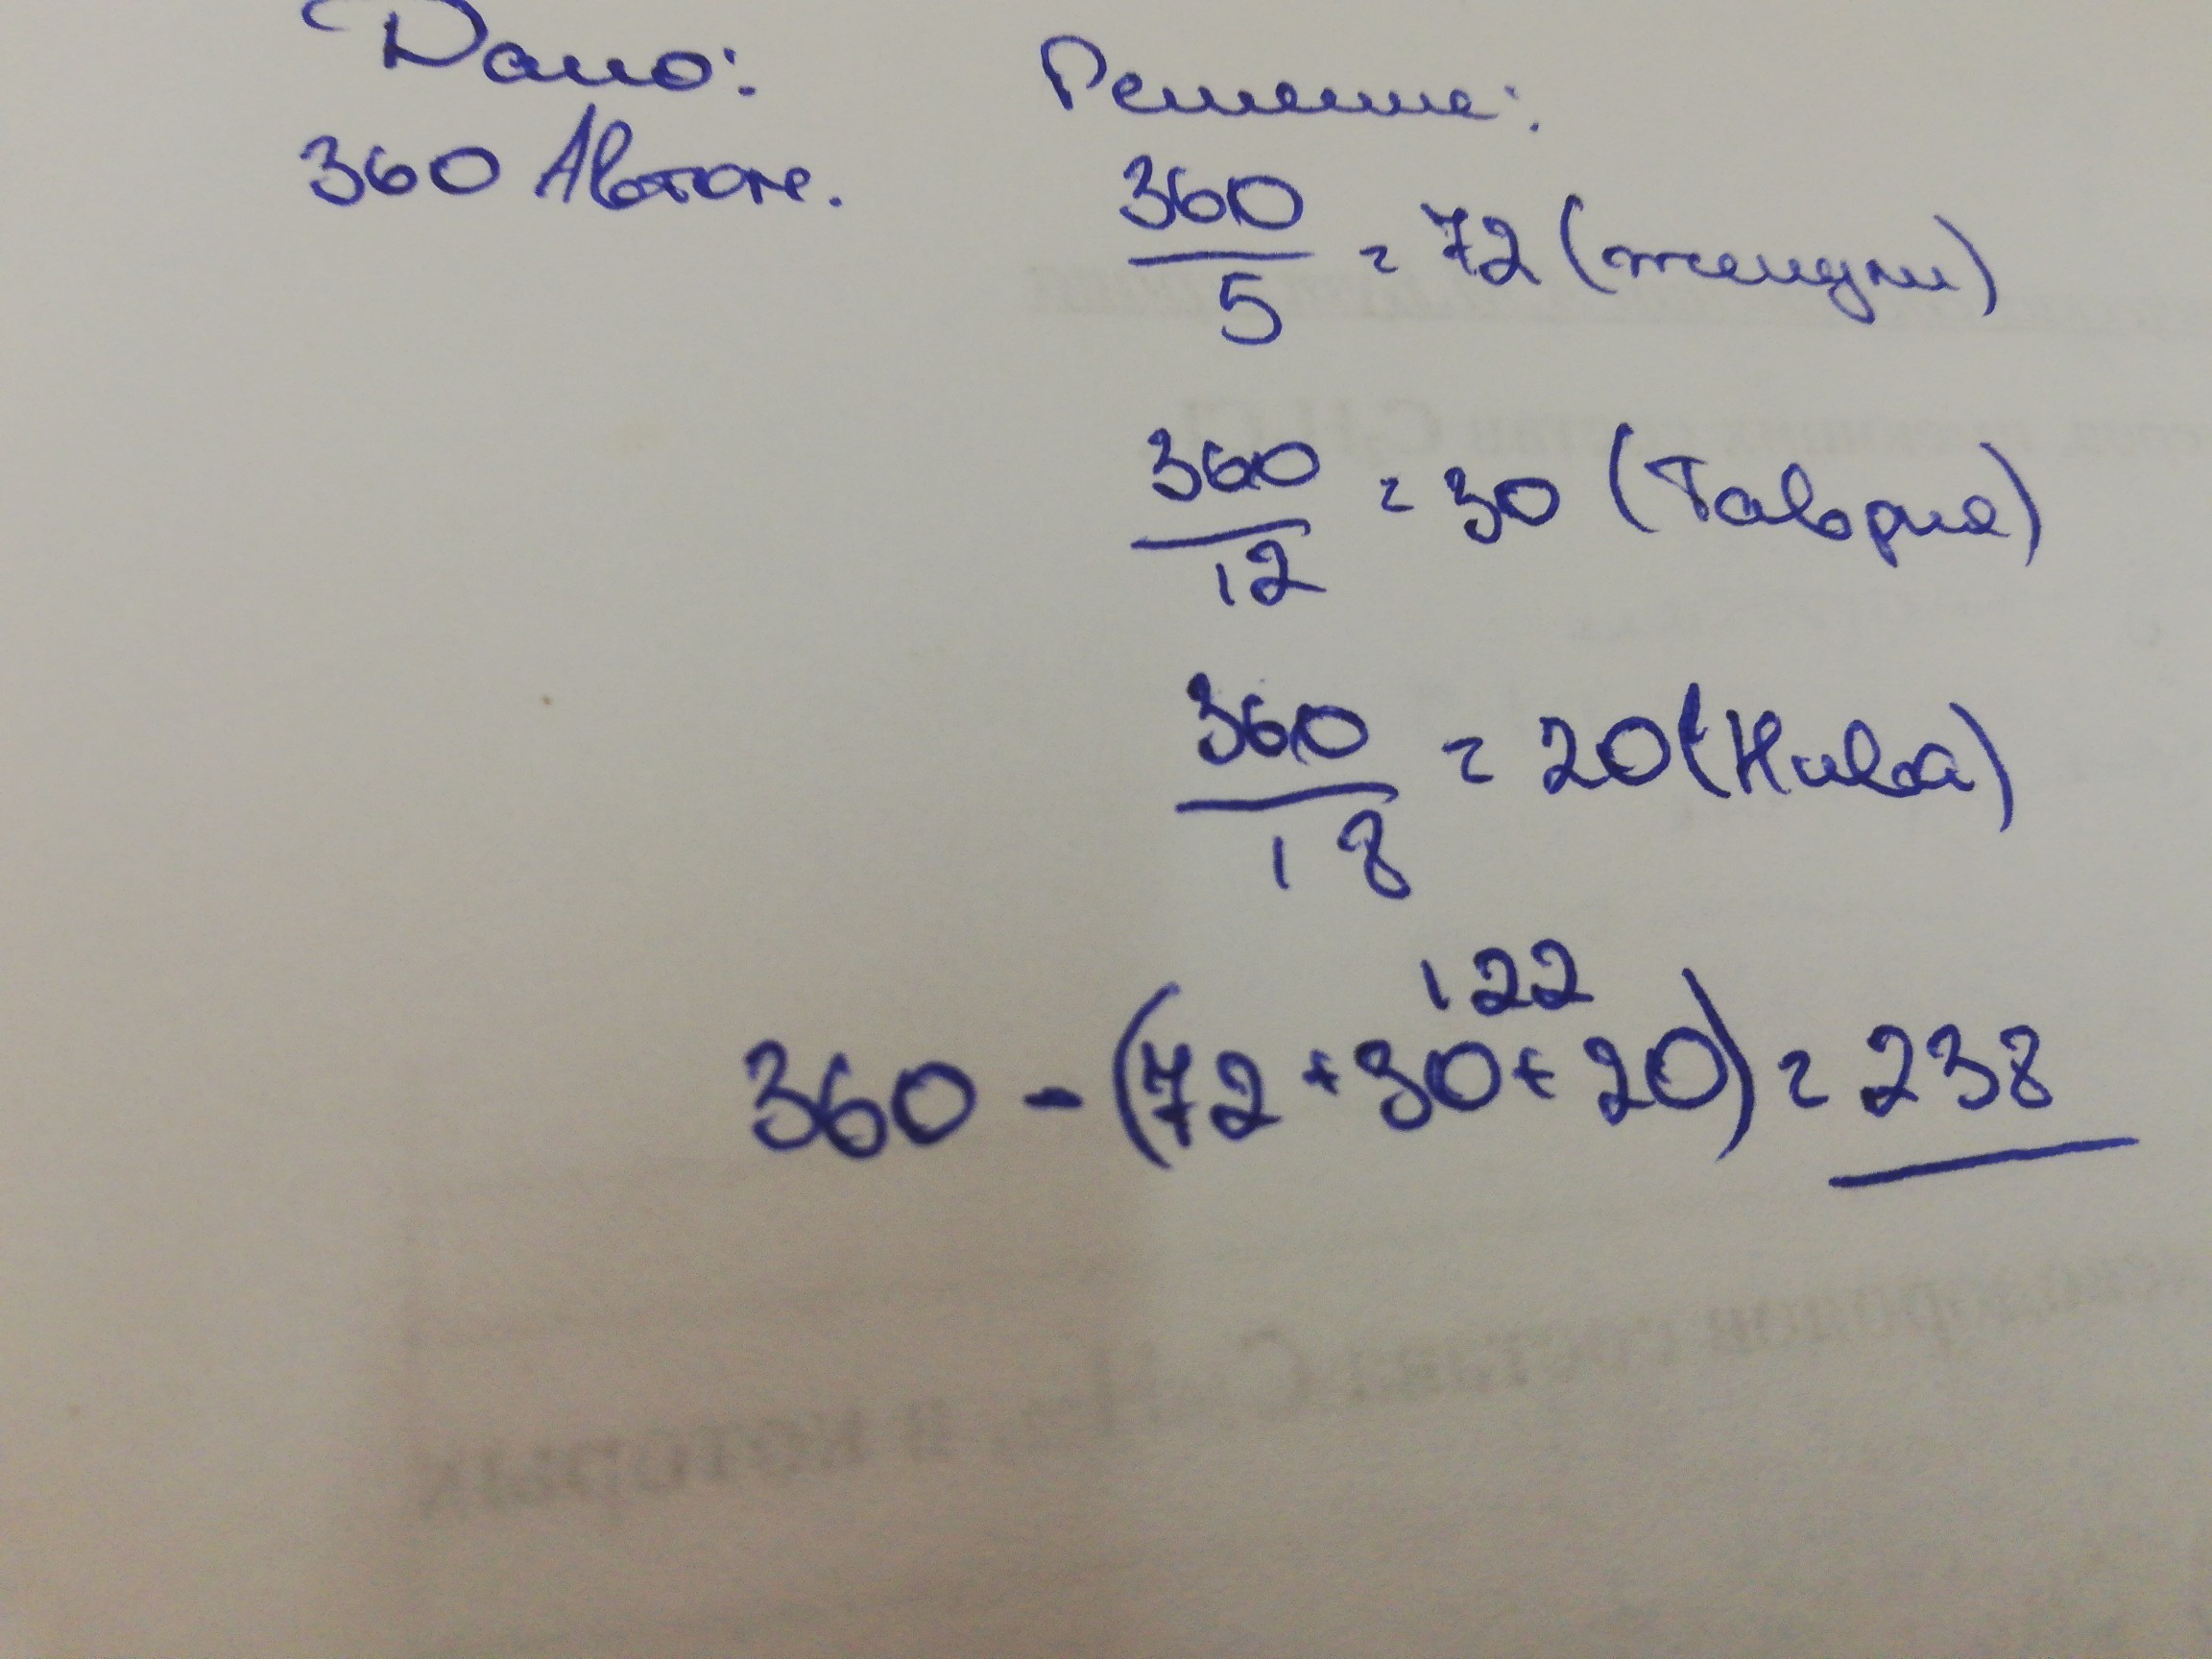 Дано:
Решение:
360 Автом.
360
5
= 72 (жигули)
360
12
= 30 (Таврия)
360
18
= 20 (Нива)
122
360 - (72 + 30 + 20) = 238
состав C
в которых